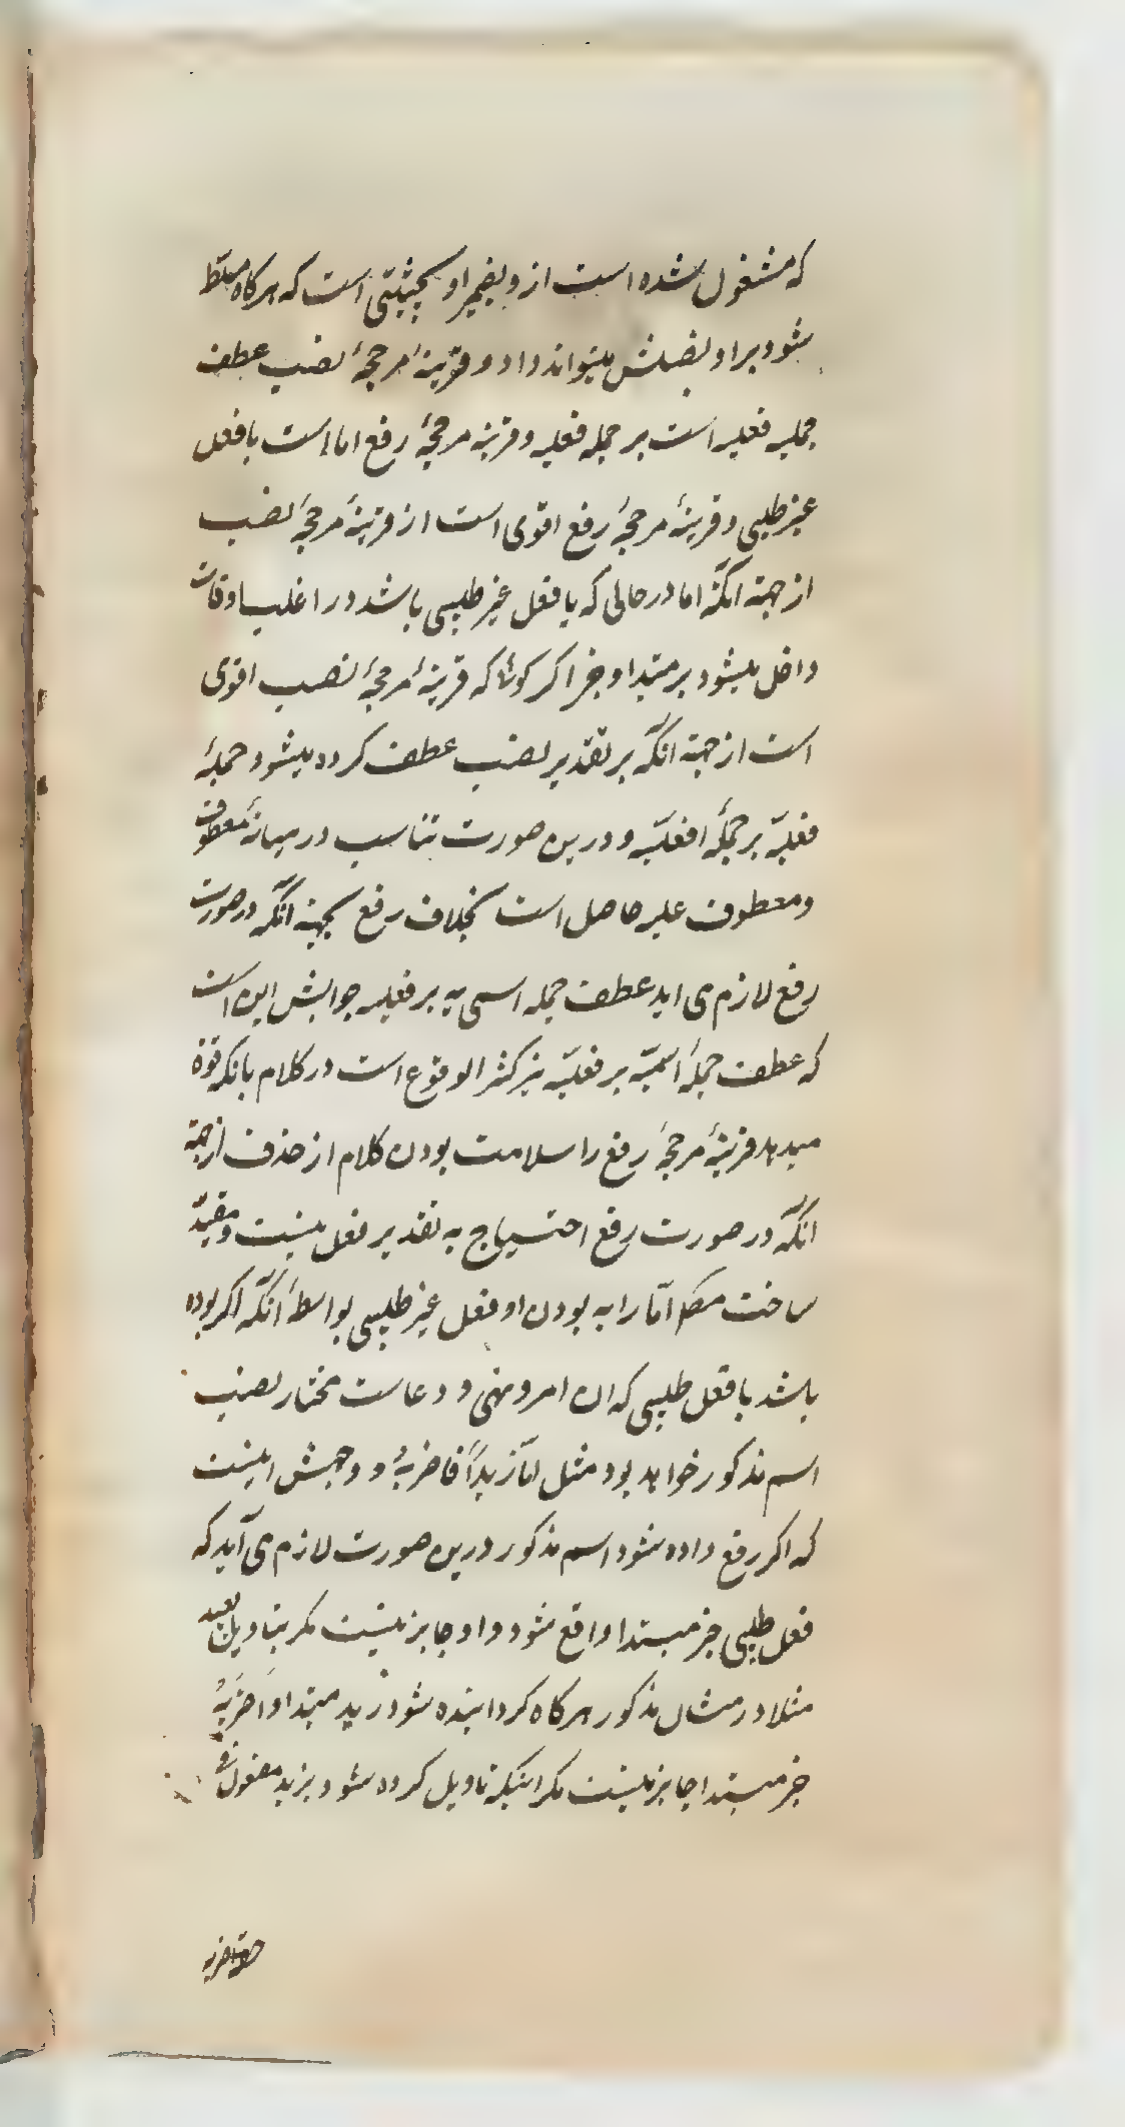 که مشغول شده است از و بضمیر او بحیثیتی است که هرکاه مسلط
شود بر او نصبش میتواند داد و قرینهٔ مرجحهٔ نصب عطف
جملیه فعلیه است بر جمله فعلیه و قرینه مرجحهٔ رفع اما است با فعل
غیر طلبی و قرینهٔ مرجحهٔ رفع اقوی است از قرینهٔ مرجحهٔ نصب
از جهته انکه اما در حالی که با فعل غیر طلبی باشد در اغلب اوقات
داخل میشود بر مبتدا و خبر اکر کوئی که قرینهٔ مرجحهٔ نصب اقوی
است از جهته انکه بر تقدیر نصب عطف کرده میشود جملهٔ
فعلیّه بر جملهٔ فعلیّه و درین صورت تناسب در میانهٔ معطوف
و معطوف علیه حاصل است بخلاف رفع بجهته انکه در صورت
رفع لازم می اید عطف جمله اسمی یه بر فعلیه جوابش این است
که عطف جملهٔ اسمیّه بر فعلیّه نیز کثیر الوقوع است در کلام بانکه قوة
میدهد قرینهٔ مرجحهٔ رفع را سلامت بودن کلام از حذف از جهته
انکه در صورت رفع احتسیاج به تقدیر فعل نیست و مقیّد
ساخت مص امّا را به بودن او فعل غیر طلبی بواسطهٔ انکه اکر بوده
باشد با فعل طلبی که ان امر و نهی و دعاست مختار نصب
اسم مذکور خواهد بود مثل امّا زیداً فاضربهُ و وجهش اینست
که اکر رفع داده شود اسم مذکور درین صورت لازم می آید که
فعل طلبی خبر مبتدا واقع شود و او جایز نیست مکر بتاویل بعید
مثلا در مثال مذکور هرکاه کردانیده شود زید مبتدا و اضربهُ
خبر مبتدا جایز نیست مکر اینکه تاویل کرده شود بزید مقول فی
حقه اضربه